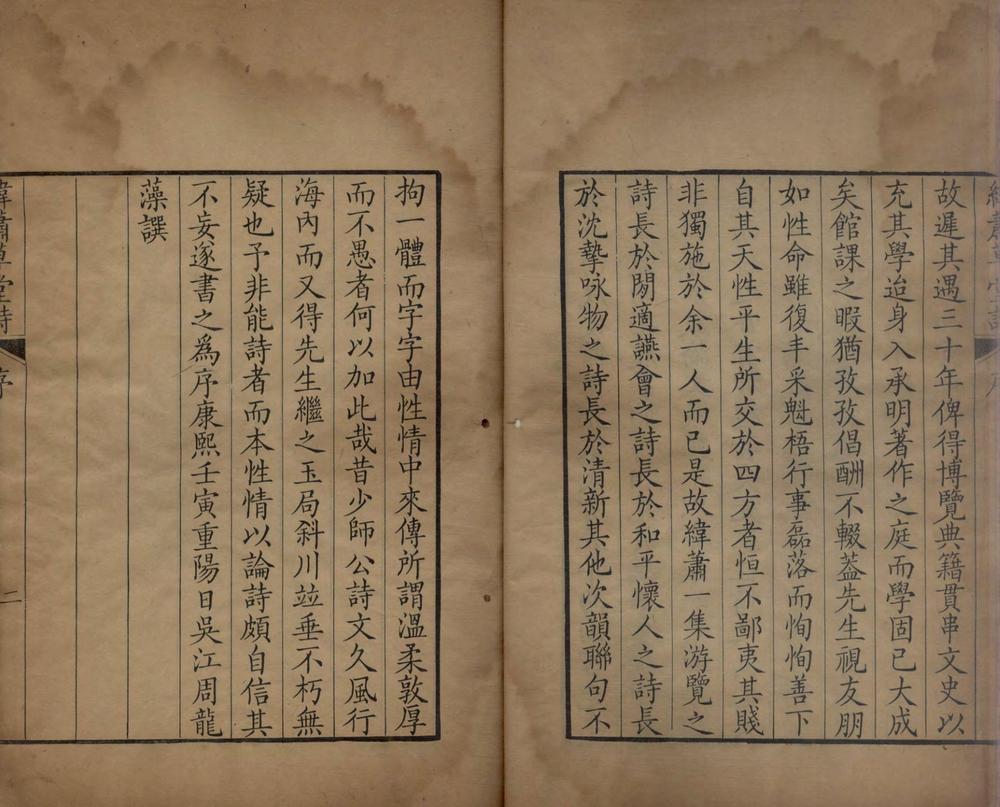 故遲其遇三十年俾得博覽典籍貫串文史以
充其學迨身入承明著作之庭而學固已大成
矣館課之暇猶孜孜倡酬不輟葢先生視友朋
如性命雖復丰采魁梧行事磊落而恂恂善下
自其天性平生所交於四方者恒不鄙夷其賤
非獨施於余一人而已是故緯蕭一集游覽之
詩長於閒適讌會之詩長於和平懷人之詩長
於沈摯咏物之詩長於清新其他次韻聯句不
拘一體而字字由性情中來傳所謂溫柔敦厚
而不愚者何以加此哉昔少師公詩文久風行
海內而又得先生繼之玉局斜川竝垂不朽無
疑也予非能詩者而本性情以論詩頗自信其
不妄遂書之為序康熙壬寅重陽日吳江周龍
藻譔
緯蕭草堂詩 序 二